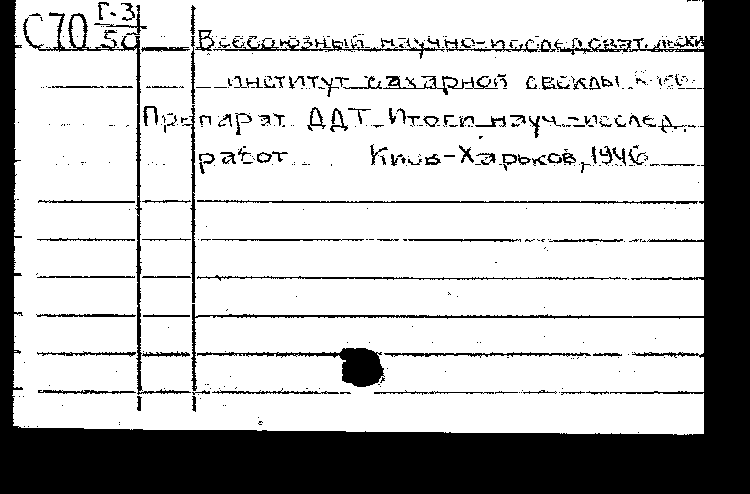 С70 Г-3
50 Всесоюзный научно-исследоват.
институт сахарной свеклы
Препарат ДДТ Итоги науч.-исслед.
работ Киев-Харьков, 1946